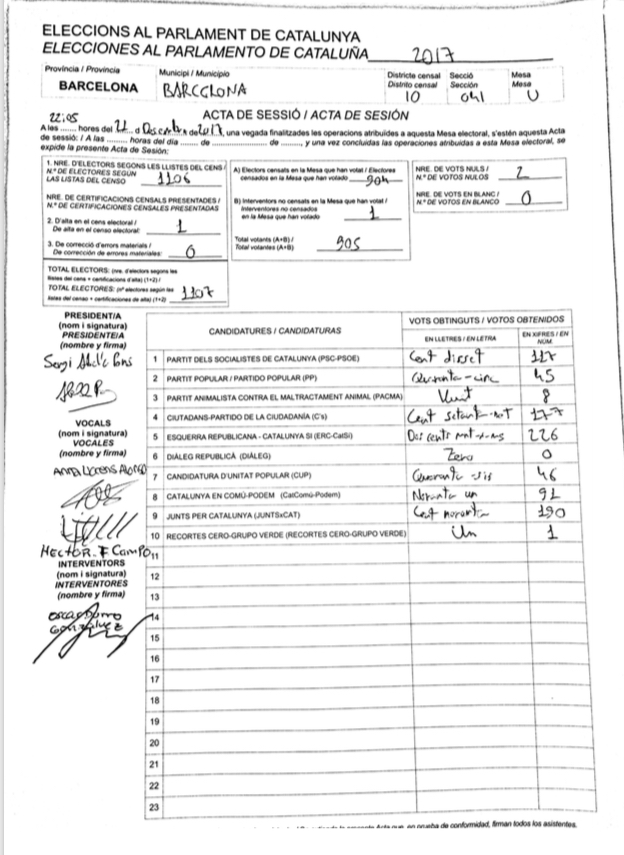 ELECCIONS AL PARLAMENT DE CATALUNYA
ELECCIONES AL PARLAMENTO DE CATALUÑA 2017
Província / Provincia
BARCELONA
Municipi / Municipio
BARCELONA
Districte censal
Distrito censal
10
Secció
Sección
041
Mesa
Mesa
U
ACTA DE SESSIÓ / ACTA DE SESIÓN
22:05
A les ........ hores del 21 d Desembre de 2017, una vegada finalitzades les operacions atribuïdes a aquesta Mesa electoral, s'estén aquesta Acta
de sessió: / A las ........ horas del día ........ de ........ de ........, y una vez concluidas las operaciones atribuidas a esta Mesa electoral, se
expide la presente Acta de Sesión:
1. NRE. D'ELECTORS SEGONS LES LLISTES DEL CENS /
N.º DE ELECTORES SEGÚN
LAS LISTAS DEL CENSO 1106
NRE. DE CERTIFICACIONS CENSALS PRESENTADES /
N.º DE CERTIFICACIONES CENSALES PRESENTADAS
2. D'alta en el cens electoral /
De alta en el censo electoral: 1
3. De correcció d'errors materials /
De corrección de errores materiales: 0
TOTAL ELECTORS: (nre. d'electors segons les
llistes del cens + certificacions d'alta) (1+2) /
TOTAL ELECTORES: (nº electores según las
listas del censo + certificaciones de alta) (1+2) 1107
A) Electors censats en la Mesa que han votat / Electores
censados en la Mesa que han votado 904
B) Interventors no censats en la Mesa que han votat /
Interventores no censados
en la Mesa que han votado 1
Total votants (A+B) /
Total votantes (A+B) 905
NRE. DE VOTS NULS /
N.º DE VOTOS NULOS 2
NRE. DE VOTS EN BLANC /
N.º DE VOTOS EN BLANCO 0
PRESIDENT/A
(nom i signatura)
PRESIDENTE/A
(nombre y firma)
Sergi
VOCALS
(nom i signatura)
VOCALES
(nombre y firma)
Anna Llorens Alonso
HECTOR. F CAMPO
INTERVENTORS
(nom i signatura)
INTERVENTORES
(nombre y firma)
oscar
González
CANDIDATURES / CANDIDATURAS
VOTS OBTINGUTS / VOTOS OBTENIDOS
EN LLETRES / EN LETRA
EN XIFRES / EN NÚM.
1 PARTIT DELS SOCIALISTES DE CATALUNYA (PSC-PSOE) Cent disset 117
2 PARTIT POPULAR / PARTIDO POPULAR (PP) Quaranta-cinc 45
3 PARTIT ANIMALISTA CONTRA EL MALTRACTAMENT ANIMAL (PACMA) Vuit 8
4 CIUTADANS-PARTIDO DE LA CIUDADANÍA (C's) Cent setanta-set 177
5 ESQUERRA REPUBLICANA - CATALUNYA SÍ (ERC-CatSí) 226
6 DIÀLEG REPUBLICÀ (DIÀLEG) Zero 0
7 CANDIDATURA D'UNITAT POPULAR (CUP) Quaranta sis 46
8 CATALUNYA EN COMÚ-PODEM (CatComú-Podem) Noranta un 91
9 JUNTS PER CATALUNYA (JUNTSxCAT) Cent noranta 190
10 RECORTES CERO-GRUPO VERDE (RECORTES CERO-GRUPO VERDE) Un 1
11
12
13
14
15
16
17
18
19
20
21
22
23
la presente Acta que, en prueba de conformidad, firman todos los asistentes.